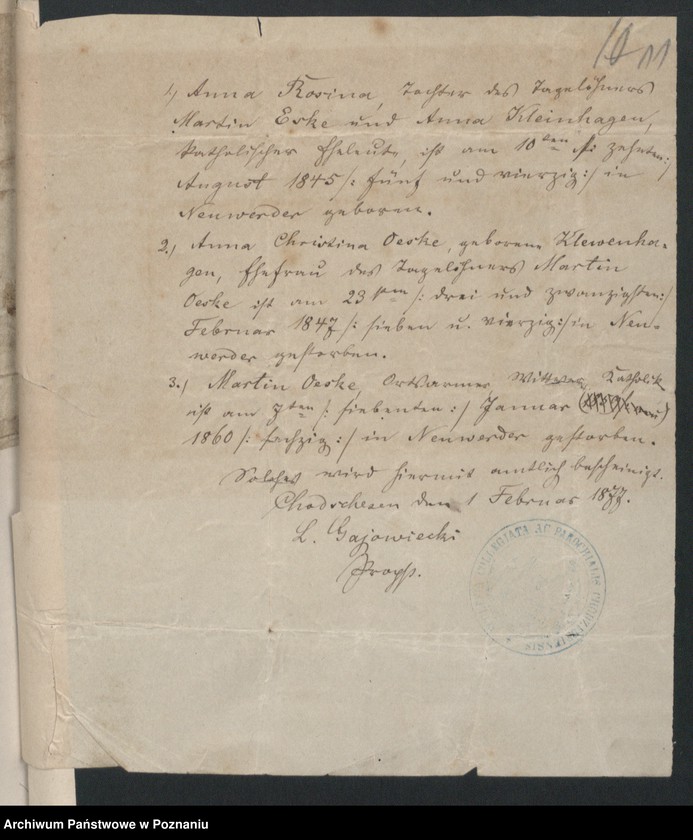 10 11
1) Anna Rosina, Tochter des Tagelöhners
Martin Eske und Anna Kleinhagen,
Katholischer Eheleute, ist am 10ten /: zehnten :/
August 1845 /: fünf und vierzig :/ in
Neuwerder geboren.
2.) Anna Christina Oeske, geborene Klewenha-
gen, Ehefrau des Tagelöhners Martin
Oeske ist am 23sten /: drei und zwanzigsten :/
Februar 1847 /: sieben u. vierzig :/ in Neu-
werder gestorben.
3.) Martin Oeske, Ortsarmer, Katholik
ist am 7ten /: siebenten :/ Januar
1860 /: sechzig :/ in Neuwerder gestorben.
Solches wird hiermit amtlich bescheinigt.
Chodschesen den 1 Februar 1877.
L. Gajowiecki
Propst.
COLLEGIATA AC PAROCHIALIS CHODZESNENSIS
Archiwum Państwowe w Poznaniu